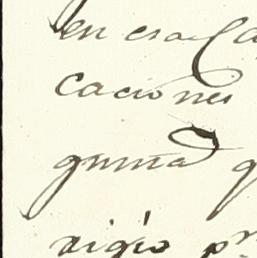 en esa Ca
caciones
guna q
rigio pr